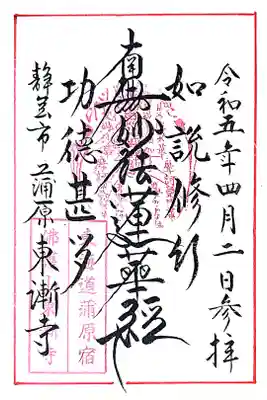 令和五年四月二日参拝
如説修行
南無妙法蓮華経
功徳甚多
静岡市 蒲原 東漸寺
東海道蒲原宿